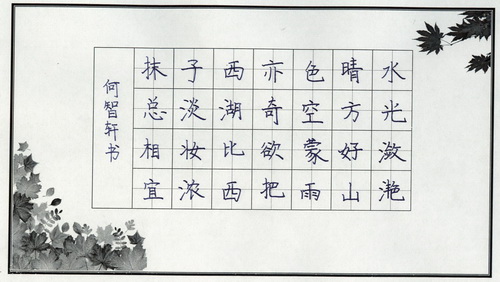 水光潋滟
晴方好山
色空蒙雨
亦奇欲把
西湖比西
子淡妆浓
抹总相宜
何智轩书